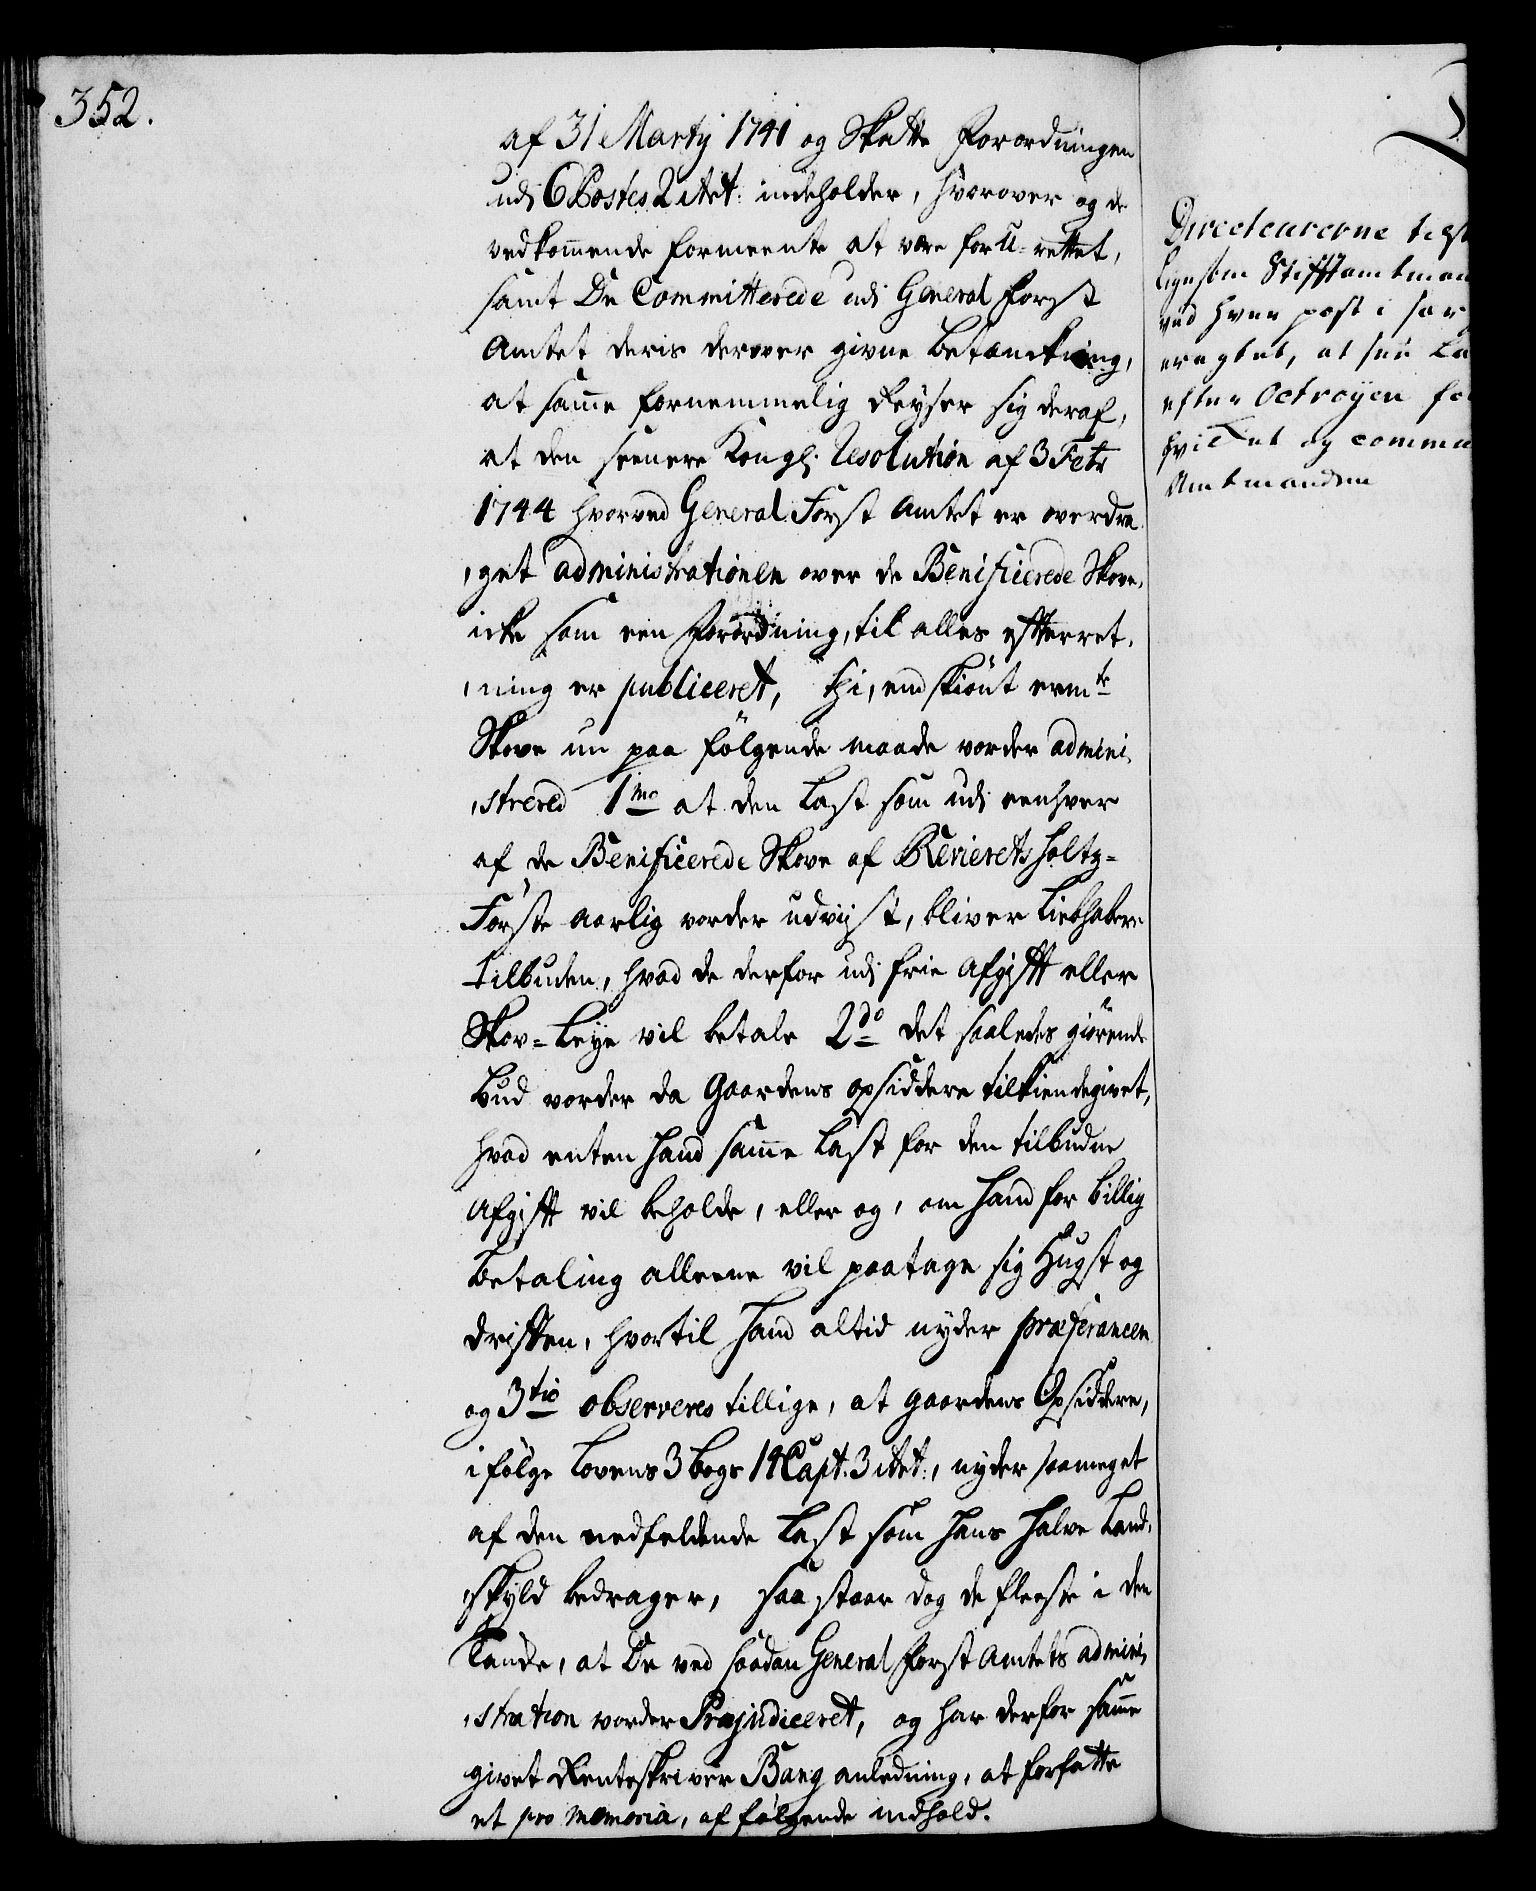 352.
af 31 Martÿ 1741 og Skatte Forordningen
udi 6 Postes 2 Art: indeholder, hvorover og de
vedkom̄ende formeente at være for U-rettet,
samt De Committerede udi General Forst
Amtet deris derover givne Betænckning,
at sam̄e fornemmelig Reyser sig deraf,
at den seenere Kongl: Resolution af 3 Febr
1744 hvorved General Forst Amtet er overdra-
,get administrationen over de Benificerede Skove,
icke som een Forordning, til alles efterret,
,ning er publiceret, thi, endskiönt erm<sup>te</sup>
Skove nu paa fölgende maade vorder admini,
,strered 1<sup>mo</sup> at den Last som udi eenhver
af de Benificerede Skove af Revierets Holtz=
Förste aarlig vorder udviist, bliver Liebhabere
tilbuden, hvad de derfor udi frie Afgift eller
Skov=Leÿe vil betale 2<sup>do</sup> det saaledes giörende
Bud vorder da Gaardens opsiddere tilkiendegivet,
hvad enten Hand sam̄e Last for den tilbudne
Afgift vil beholde, eller og, om Hand for billig
Betaling alleene vil paatage sig Hugst og
Driften, hvortil Hand altid nyder præferancen
og 3<sup>tio</sup> observeres tillige, at gaardens Opsiddere,
ifölge Lovens 3 bogs 14 Capt. 3 Art:, nyder saameget
af den nedfeldende Last som Hans Halve Land,
,skyld bedrager, saa staar dog de fleeste i den
Tanke, at De ved saadan General Forst Amtets admini,
,stration vorder Præjudiceret, og har derfor sam̄e
givet Renteskriver Bang anledning, at forfatte
et pro memoria, af fölgende indhold.
Directeurerne
ligesom Stifftamtman
ved hver post i
eragtet, at
efter Octroyen
hvilket og
Amtmanden